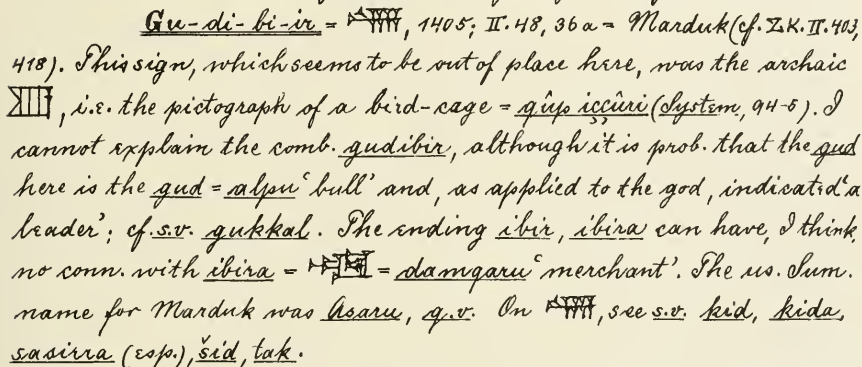 Gu-di-bi-ir = , 1405; II. 48, 36a = Marduk (cf. ZK. II. 403,
418). This sign, which seems to be out of place here, was the archaic
, i.e. the pictograph of a bird-cage = qûp iççûri (System, 94-5). I
cannot explain the comb. gudibir, although it is prob. that the gud
here is the gud = alpu ‘bull’ and, as applied to the god, indicated ‘a
leader’; cf. s.v. gukkal. The ending ibir, ibira can have, I think,
no conn. with ibira = = damqaru ‘merchant’. The us. Sum.
name for Marduk was Asaru, q.v. On , see s.v. kid, kida,
sasirra (esp.), šid, tak.